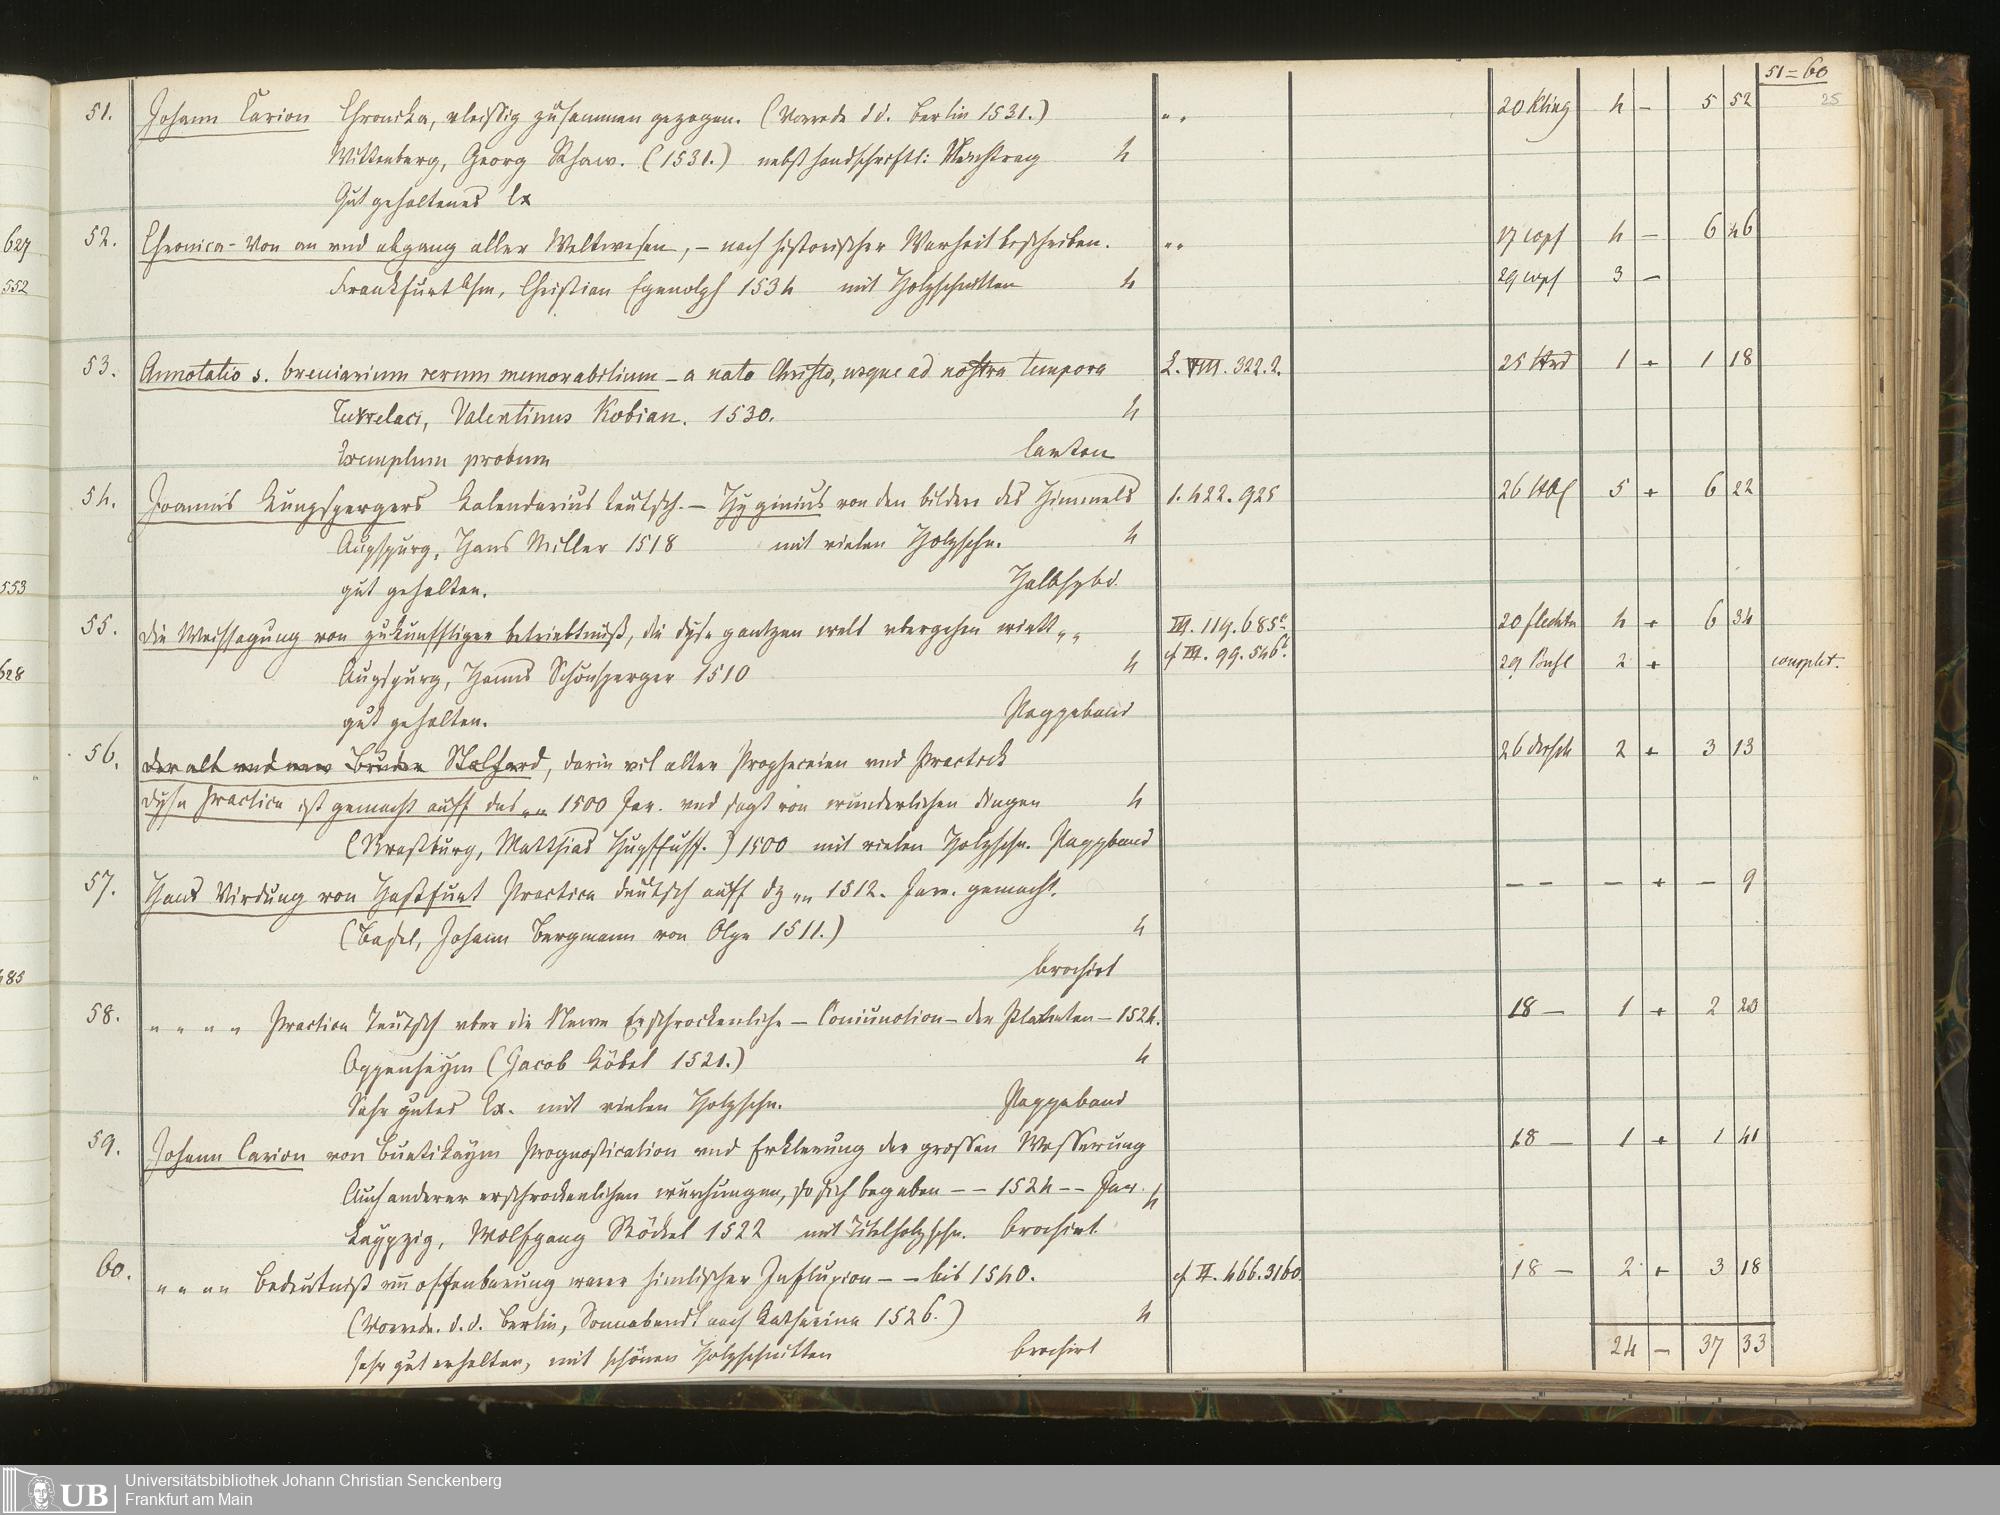 51 = 60
25
51. Johann Carion Chronika, vleissig zusammen gezogen. (Vorrede d d. Berlin 1531.) „ „ 20 Kling 4 – 5 52
Wittenberg, Georg Rhaw. (1531.) nebst handschriftl: Nachtrag 4
Gut gehaltenes Ex
627 52. Chronica - Von an vnd abgang aller Weltwesen, – nach historischer Warheit beschriben. „ „ 4 – 6 46
552 Frankfurt a/m, Christian Egenolph 1534 mit Holzschnitten 4 3 –
53. Annotatio s. breuiarium rerum memorabilium – a nato Christo, usque ad nostra tempora 322. 2. 1 + 1 18
Durelaci, Valentinus Kobian. 1530. 4
Exemplum probum Carton
54. Joannis Kungspergers Kalendarius teutsch. – Hyginius von den bildern des Himmels 1. 422. 925 5 + 6 22
Augspurg, Hans Miller 1518 mit vielen Holzschn. 4
553 gut gehalten. Halbfzbd.
55. Die Weissagung von zukunfftiger betriebtnuß, die dyse gantzen welt vbergehen wirtt „ „ III. 119. 685 20 flecktn 4 + 6 34
cf III. 99. 546
628 Augspurg, Hanns Schönsperger 1510 4 2 + complet.
gut gehalten. Pappeband
56. Der alt vnd new Bruder Nolhard, darin vil alter Propheceien vnd Practick 2 + 3 13
dyse Practica ist gemacht auff das „ „ 1500 Jar. vnd sagt von wunderlichen dingen 4
(Straßburg, Matthias Hupffuff.) 1500 mit vielen Holzschn. Pappband
57. Hans Virdung von Hassfurt Practica deutsch auff dz „ „ 1512. Jare. gemacht. – – – + – 9
(Basel, Johann Bergmann von Olpe 1511.) 4
485 brochirt
58. „ „ „ „ Practica Teutsch vber die Newe Erschrockenliche – Coniunction – der Planeten – 1524. 18 – 1 + 2 20
Oppenheym (Jacob Köbel 1521.) 4
Sehr gutes Ex. mit vielen Holzschn. Pappeband
59. Johann Carion von Buetikaym Prognostication vnd Erklerung der grossen Wesserung 18 – 1 + 1 41
Auch anderer erschrockenlichen wurchungen, so sich begeben – – 1524 – – Jar. 4
Leypzig, Wolfgang Stöckel 1522 mit Titelholzschn. brochirt.
60. „ „ „ „ Bedeutniß vn̄ offenbarung warer himlischer Influxion – – bis 1540. cf II. 466. 3160 18 – 2 + 3 18
(Vorrede. d. d. Berlin, Sonnabendt nach Katharina 1526.) 4
sehr gut erhalten, mit schönen Holzschnitten brochirt
24 – 37 33
UB
Universitätsbibliothek Johann Christian Senckenberg
Frankfurt am Main